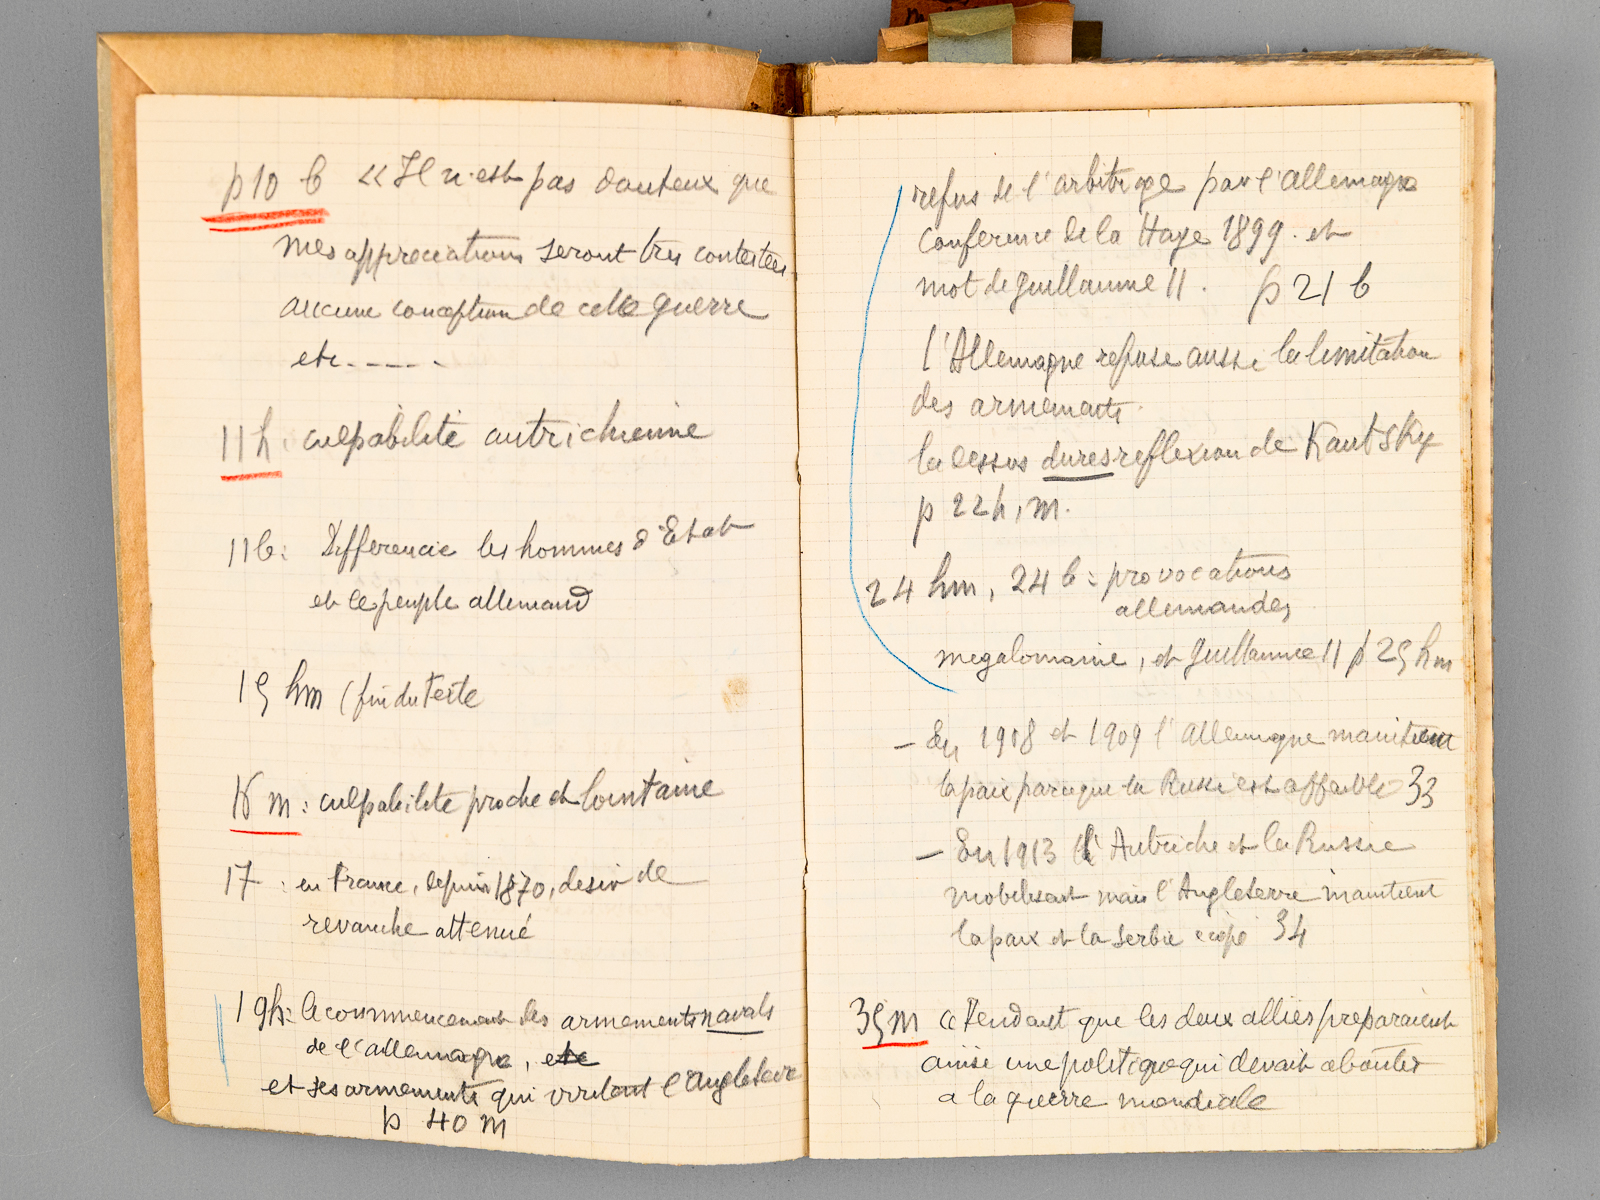 p 10 b « Il n'est pas douteux que
mes appreciations seront très contestées
aucune conception de cette guerre
etc-----
11 h : culpabilité autrichienne
11 b : Differencie les hommes d'Etat
et le peuple allemand
15 hm (fin du texte
m : culpabilite proche et lointaine
17 : en France, depuis 1870, desir de
revanche attenué
19h : le commencement des armements navals
de l'allemagne, etc
et ses armements qui irritent l'angleterre
p 40 m
refus de l'arbitrage par l'allemagne
conference de la Haye 1899. et
mot de guillaume II. p 21 b
l'Allemagne refuse aussi la limitation
des armements.
la dessus dures reflexion de Kautsky
p 22 h, m.
24 hm, 24 b : provocations
allemandes
megalomanie, et guillaume II p 25 hm
- En 1908 et 1909 l'allemagne maintient
la paix parce que la Russie est affaiblie 33
- En 1913 l'Autriche et la Russie
mobilisent mais l'Angleterre maintient
la paix et la Serbie 34
35 m « Pendant que les deux alliés preparaient
ainsi une politique qui devait aboutir
a la guerre mondiale